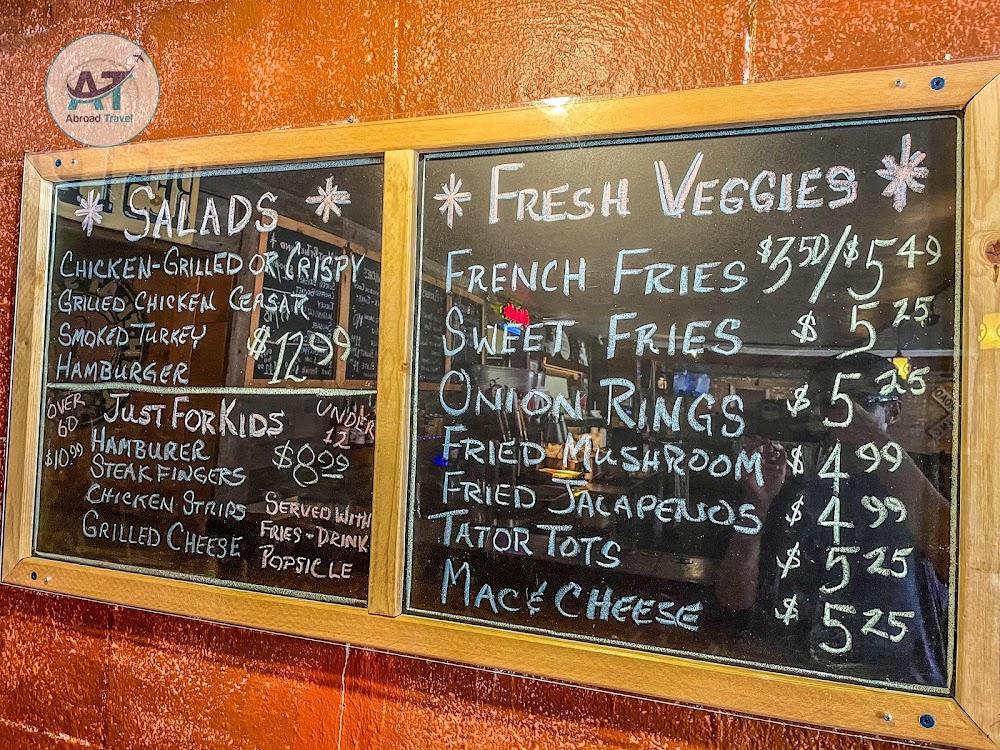 AT
Abroad Travel
* SALADS *
CHICKEN-GRILLED OR CRISPY
GRILLED CHICKEN CEASAR
SMOKED TURKEY
HAMBURGER
$12.99
OVER
60
$10.99
JUST FOR KIDS
UNDER
12
HAMBURER
$8.99
STEAK FINGERS
CHICKEN STRIPS
GRILLED CHEESE
SERVED WITH
FRIES - DRINK
POPSICLE
* FRESH VEGGIES *
FRENCH FRIES $3.50/$5.49
SWEET FRIES $5.25
ONION RINGS $5.25
FRIED MUSHROOM $4.99
FRIED JALAPENOS $4.99
TATOR TOTS $5.25
MAC & CHEESE $5.25